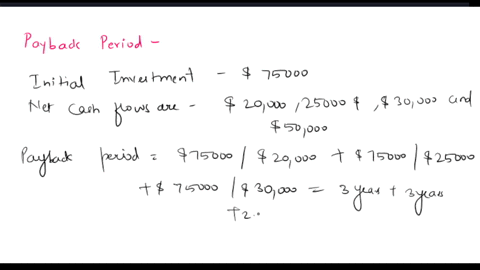 Payback Period -
Initial Investment - $ 75000
Net Cash flows are - $ 20,000, 25000 $, $30,000 and
$50,000
Payback period = $75000 / $ 20,000 + $75000 / $25000
+ $ 75000 / $30,000 = 3 year + 3 years
+ 2.